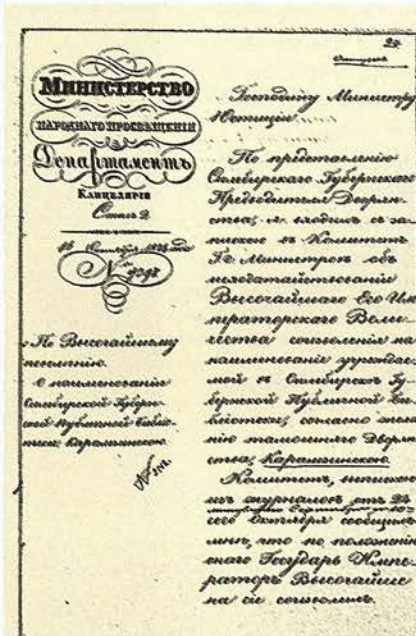 МИНИСТЕРСТВО
НАРОДНАГО ПРОСВѢЩЕНІЯ
Департаментъ
КАНЦЕЛЯРІЯ
Столъ 2.
№
По Высочайшему
повелѣнію.
О наименованіи
Симбирской Губерн-
ской Публичной Библіо-
теки Карамзинскою.
Господину Министру
Юстиціи
По представленію
Симбирскаго Губернскаго
Предводителя Дворян-
ства, я входилъ съ за-
пискою въ Комитетъ
Гг. Министровъ объ
исходатайствованіи
Высочайшаго Его Им-
ператорскаго Вели-
чества соизволенія на
наименованіе учреждае-
мой въ Симбирскѣ Гу-
бернской Публичной Би-
бліотеки, согласно жела-
нію тамошняго Дворян-
ства, Карамзинскою.
Комитетъ, выпискою
изъ журналовъ
сего Октября сообщилъ
мнѣ, что по положенію
онаго Государь Импе-
раторъ Высочайше
на сіе соизволилъ.